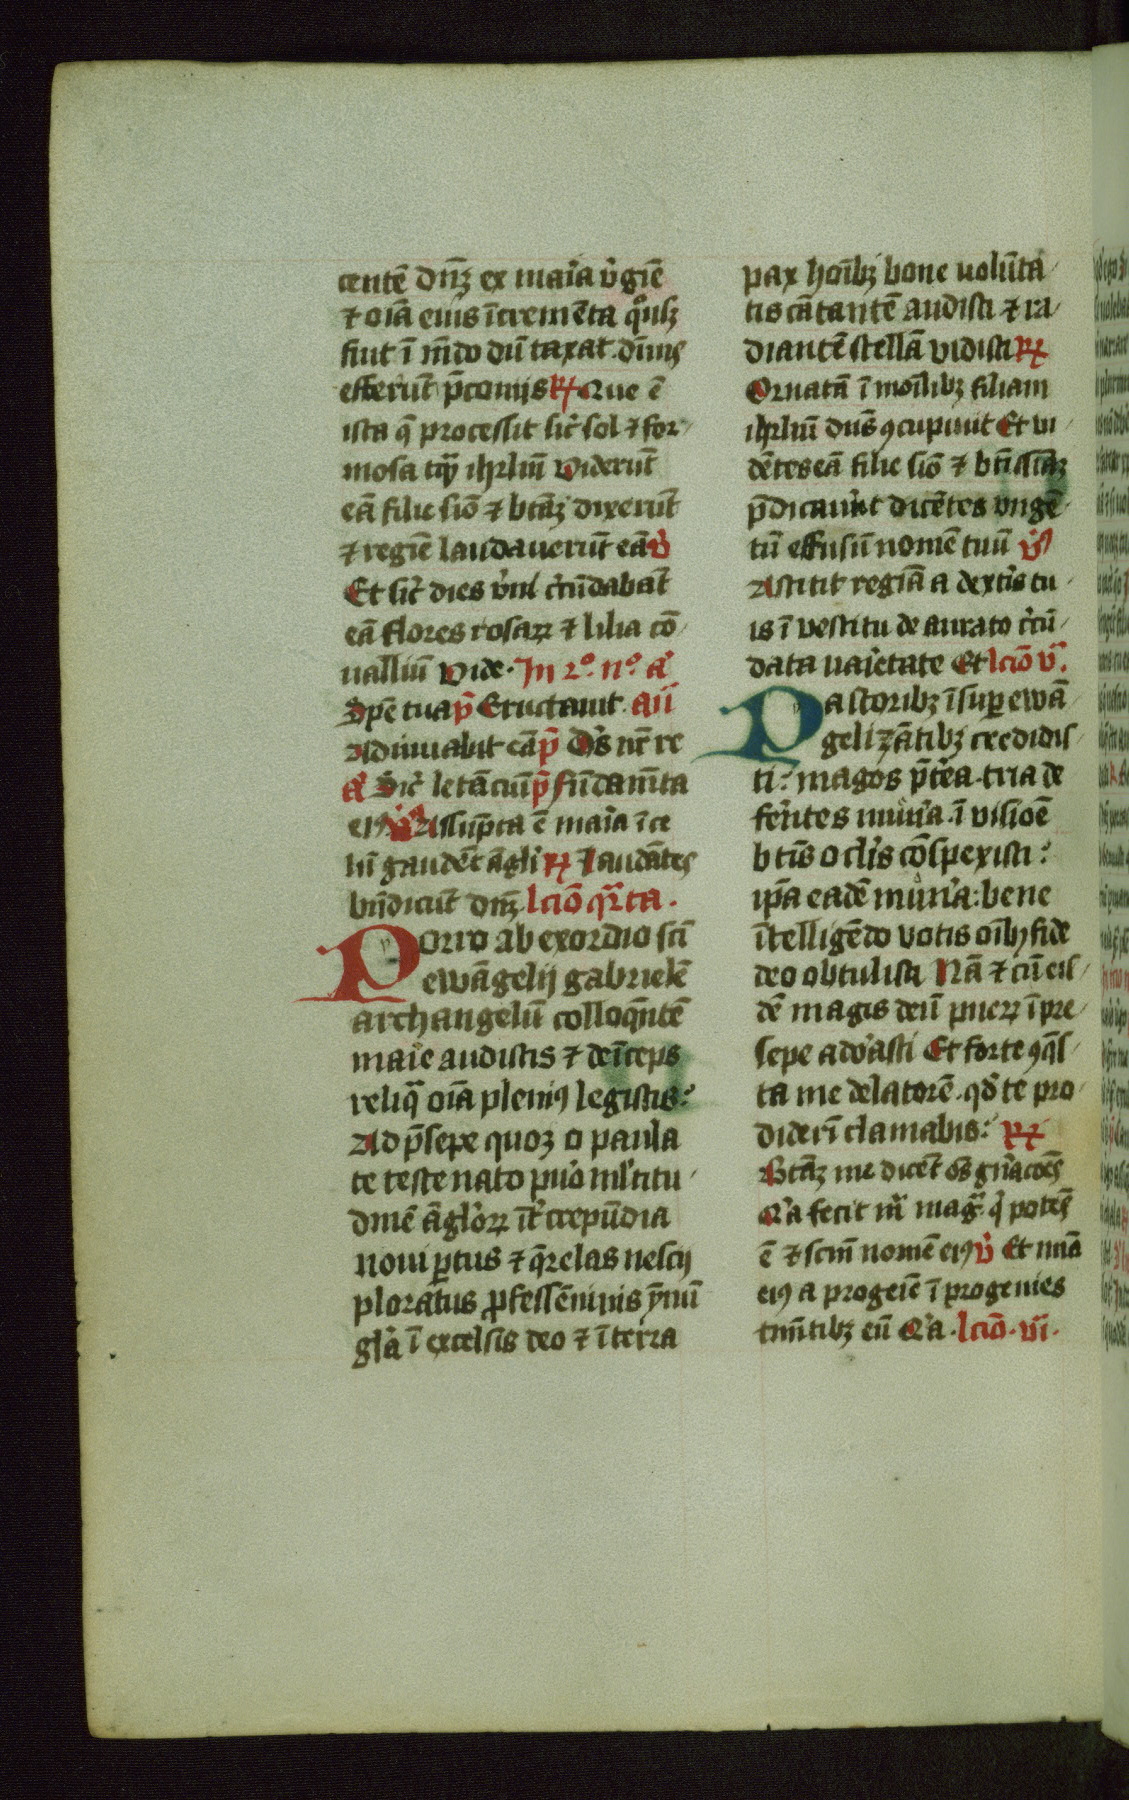 centē dn̄ꝫ ex mar̄ia v̓giē
⁊ oīa eius īcremēta q̊usꝫ
fiūt ī mūdo dū taxat dīuīs
efferūt p̄conijs R̸ Que ē
ista q̄ processit sic̄ sol ⁊ for
mosa tāqꝫ ihrlm̄ viderūt
eā filie siō ⁊ btāꝫ dixerūt
⁊ regīe laudauerūt eā v̓
Et sic̄ dies v̓ni cir̄cūdabāt
eā flores rosaꝝ ⁊ lilia cō
ualliū vide · Jn 2º nº a͛
Spē tua p̄s Eructauit aīī
Adiuuabit eā p̄s Ds̄ nr̄ re
a͛ Sic̄ letāciū p̄s fūdamēta
eiꝰ v̓ Assūpta ē mar̄ia ī ce
lū gaudēt āgl̄i R̸ laudātes
bn̄dicūt dn̄ꝫ lc̄io q̄rta ·
Porro ab exordio sc̄i
ewāgelij gabrielē
archangelū colloq̄ntē
mar̄ie audistis ⁊ deīceps
reliq̄ oīa pleniꝰ legistis:
Ad p̄sepe quoꝫ o paula
te teste nato pūo īstitu
dīnē āgl̓oꝝ īt̓ crepūdia
noui ꝑtus ⁊ q̄relas nescij
ploratus ꝓ fescēninis ymnū
gl̄a ī excelsis deo ⁊ ī terra
pax hoībꝫ bone uolūta
tis cātantē audisti ⁊ ra
diantē stellā vidisti R̸
Ornatā ī monilibꝫ filiam
ihrlm̄ dn̄s ꝯcupiuit Et vi
dētes eā filie siō ⁊ btīssimāꝫ
p̄dicauer̄t dicētes vngē
tū effusū nomē tuū v̓s
Astitit regīa a dextr̄is tu
is ī vestitu de aurato cir̄cū
data uar̄ietate Et lc̄io v͛
Pastoribꝫ īsuꝑ ewā
gelizātibꝫ credidis
ti: magos p̄terea tria de
ferētes mun̄ra ī visiōe
btīs oclīs cōspexisti:
ip̄a eadē mun̄ra: bene
ītelligēdo votis oībꝫ fide
deo obtulisti Nā ⁊ cū eis
dē magis deū pueꝝ ī pre
sepe adorasti Et forte ꝯq̄s
ta me delatorē qd̓ te pro
diderī clamabis: R̸
Btāꝫ me dicēt oēs gn̄ac̄oēs
Q̓a fecit m̓ maḡ q̓ potēs
ē ⁊ scm̄ nomē eiꝰ v̓ Et mīa
eiꝰ a progeīe ī progenies
timētibꝫ eū Q̓a · lc̄io · vī ·